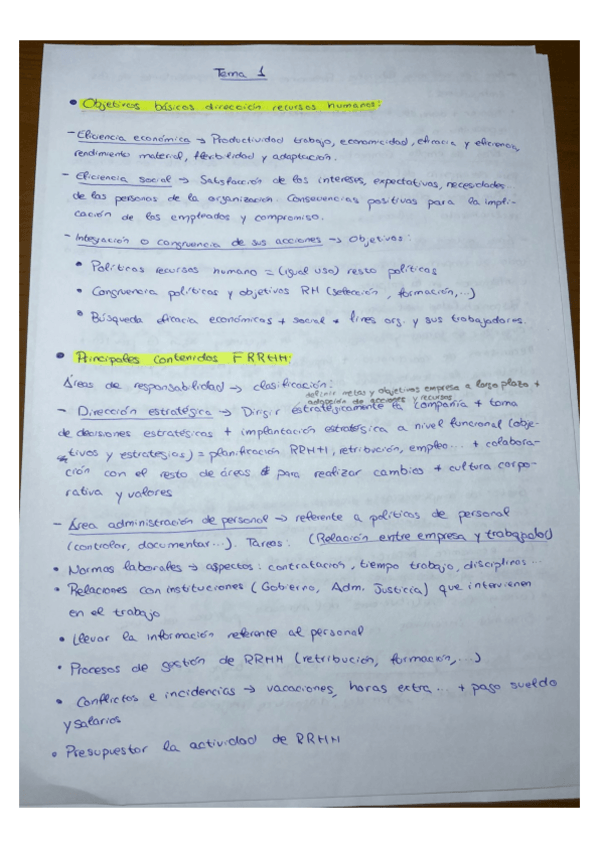 Tema 1
• Objetivos básicos dirección recursos humanos:
- Eficiencia económica → Productividad trabajo, economicidad, eficacia y eficiencia,
rendimiento material, flexibilidad y adaptación.
- Eficiencia social → Satisfacción de los intereses, expectativas, necesidades...
de las personas de la organización. Consecuencias positivas para la impli-
cación de los empleados y compromiso.
- Integración o congruencia de sus acciones → Objetivos:
• Políticas recursos humano = (igual uso) resto políticas
• Congruencia políticas y objetivos RH (selección, formación,...)
• Búsqueda eficacia económicos + social + fines org. y sus trabajadores.
• Principales contenidos FRRHH:
Áreas de responsabilidad → clasificación:
definir metas y objetivos empresa a largo plazo +
adopción de acciones y recursos.
- Dirección estratégica → Dirigir estratégicamente la compañía + toma
de decisiones estratégicas + implantación estratégica a nivel funcional (obje-
tivos y estrategias) = planificación RRHH, retribución, empleo... + colabora-
ción con el resto de áreas para realizar cambios + cultura corpo-
rativa y valores
- Área administración de personal → referente a políticas de personal
(controlar, documentar...). Tareas: (Relación entre empresa y trabajador)
• Normas laborales → aspectos: contratación, tiempo trabajo, disciplinas...
• Relaciones con instituciones (Gobierno, Adm. Justicia) que intervienen
en el trabajo
• Llevar la información referente al personal
• Procesos de gestión de RRHH (retribución, formación,...)
• Conflictos e incidencias → vacaciones, horas extra... + pago sueldo
y salarios
• Presupuestar la actividad de RRHH